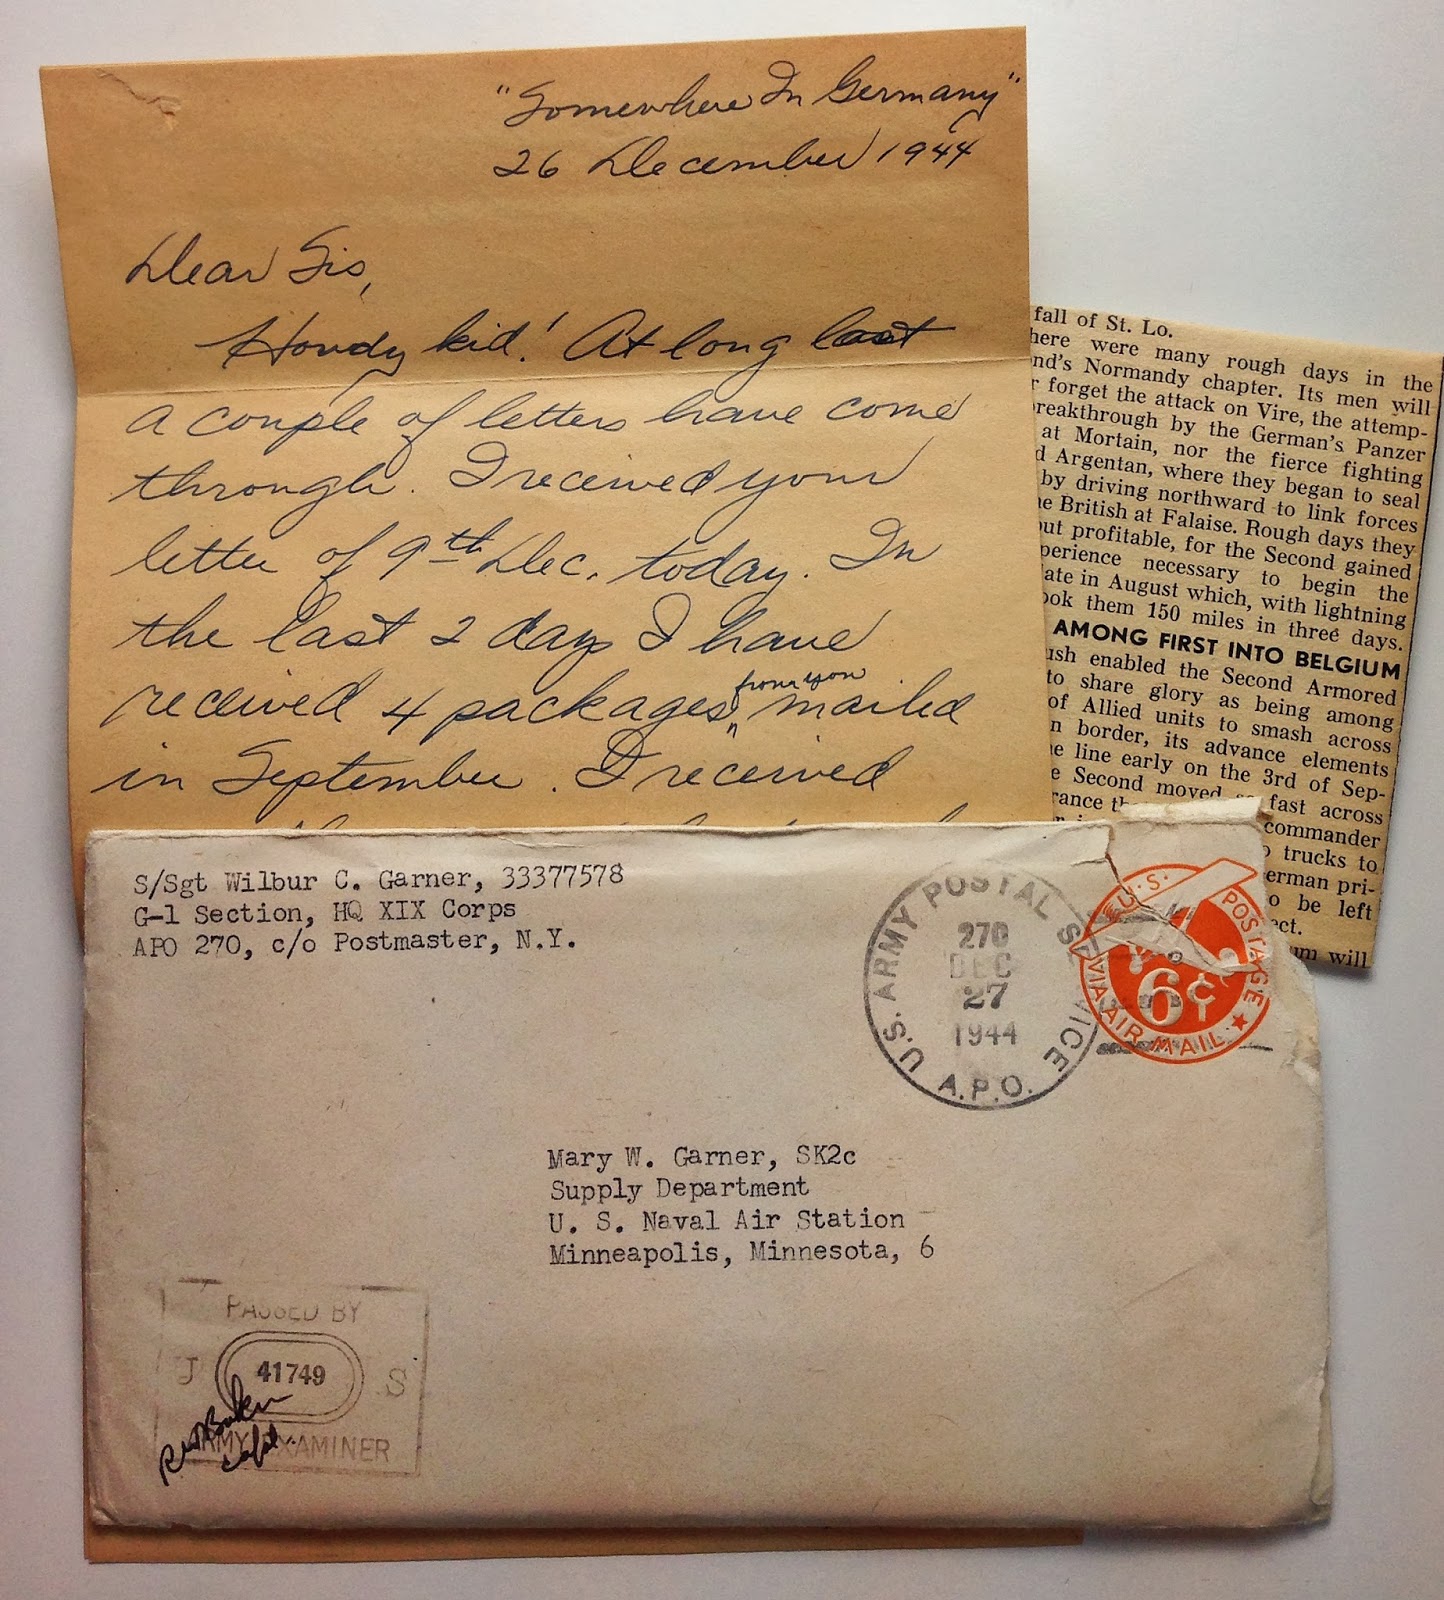 "Somewhere In Germany"
26 December 1944
Dear Sis,
Howdy kid! At long last
a couple of letters have come
through. I received your
letter of 9th Dec. today. In
the last 2 days I have
received 4 packages, from you mailed
in September. I received
fall of St. Lo.
here were many rough days in the
nd's Normandy chapter. Its men will
r forget the attack on Vire, the attemp-
reakthrough by the German's Panzer
at Mortain, nor the fierce fighting
d Argentan, where they began to seal
by driving northward to link forces
he British at Falaise. Rough days they
out profitable, for the Second gained
perience necessary to begin the
late in August which, with lightning
ook them 150 miles in three days.
AMONG FIRST INTO BELGIUM
ush enabled the Second Armored
to share glory as being among
of Allied units to smash across
n border, its advance elements
he line early on the 3rd of Sep-
e Second moved so fast across
rance th
commander
o trucks to
erman pri-
o be left
ect.
um will
S/Sgt Wilbur C. Garner, 33377578
G-1 Section, HQ XIX Corps
APO 270, c/o Postmaster, N.Y.
U.S. ARMY POSTAL SERVICE
270
DEC
27
1944
A.P.O.
U.S. POSTAGE
6¢
VIA AIR MAIL
Mary W. Garner, SK2c
Supply Department
U. S. Naval Air Station
Minneapolis, Minnesota, 6
PASSED BY
U 41749 S
ARMY EXAMINER